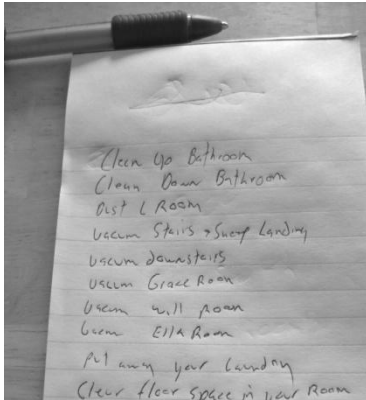 Clean Up Bathroom
Clean Down Bathroom
Dust L Room
Vacum Stairs > Sweep Landing
Vacum downstairs
Vacum Grace Room
Vacum Will Room
Vacum Ella Room
Put away your laundry
Clear floor space in your Room